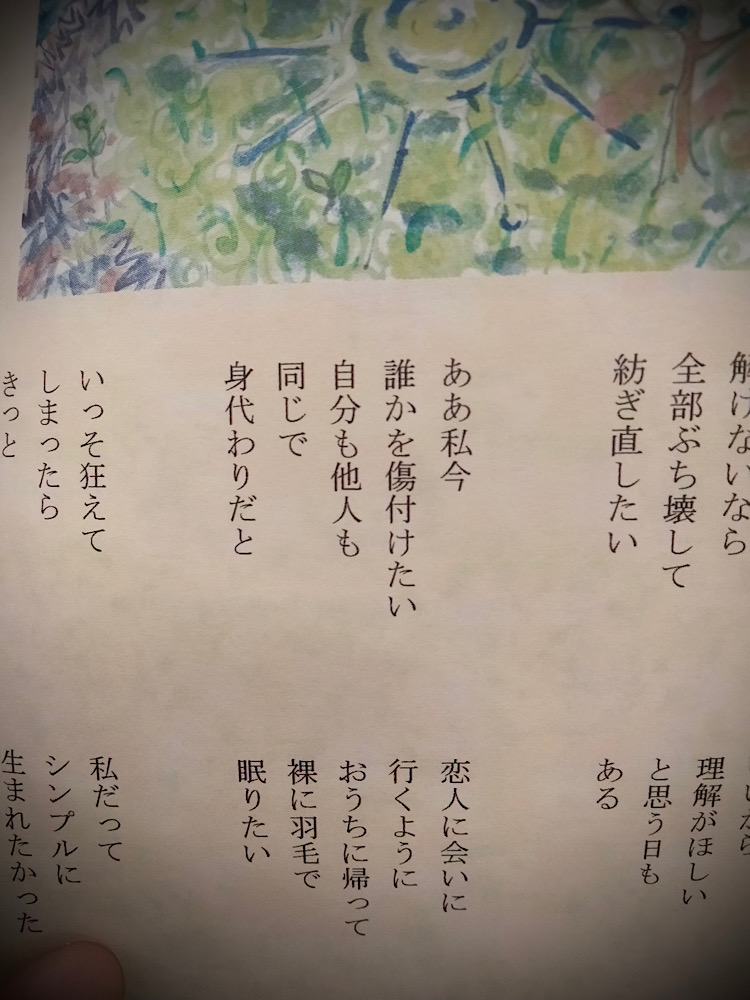 解けないなら
全部ぶち壊して
紡ぎ直したい
ああ私今
誰かを傷付けたい
自分も他人も
同じで
身代わりだと
いっそ狂えて
しまったら
きっと
理解がほしい
と思う日も
ある
恋人に会いに
行くように
おうちに帰って
裸に羽毛で
眠りたい
私だって
シンプルに
生まれたかった